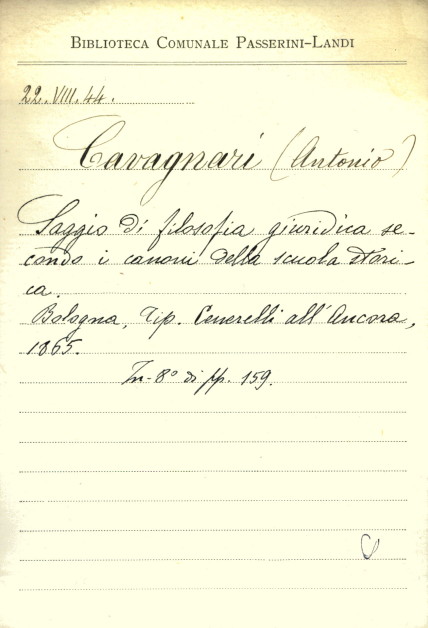 BIBLIOTECA COMUNALE PASSERINI-LANDI
22. VIII. 44.
Cavagnari (Antonio)
Saggio di filosofia giuridica se-
condo i canoni della scuola stori-
ca.
Bologna, Tip. Cenerelli all'Ancora,
1865.
In-8° di pp. 159.